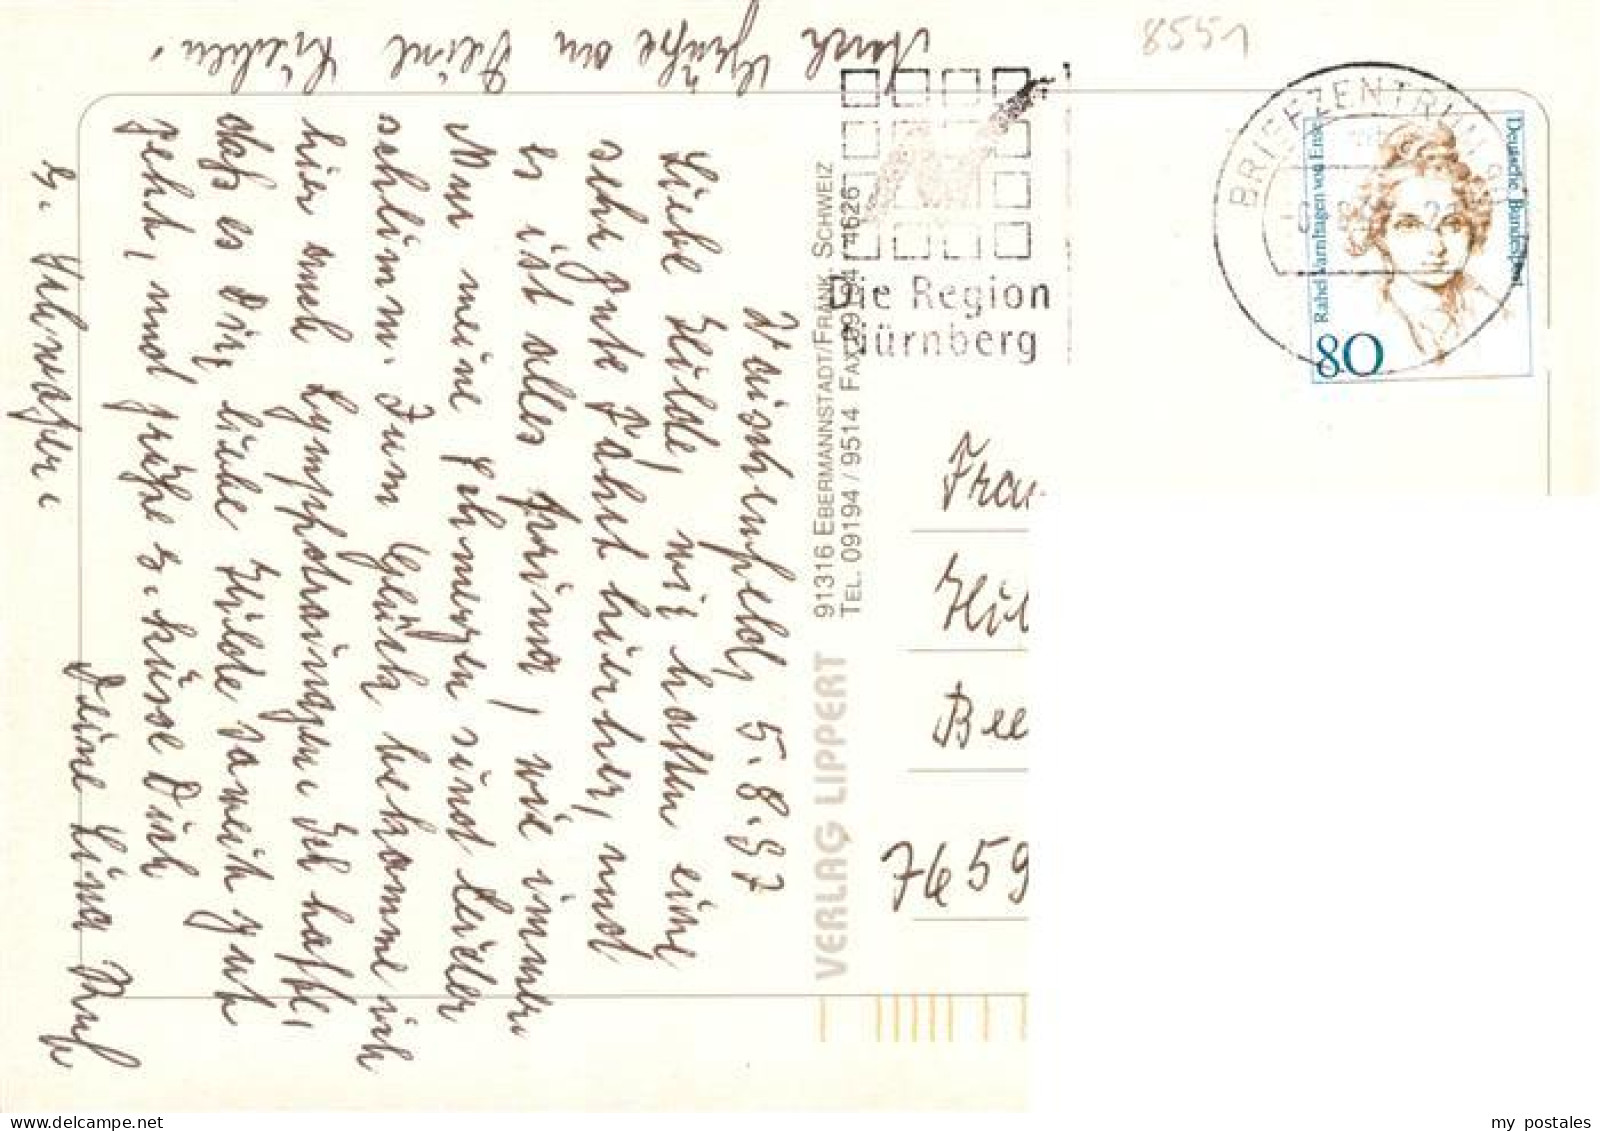 Waischenfeld, 5.8.97
Liebe Hilde, wir hatten eine
sehr gute Fahrt hierher, und
es ist alles prima, wie immer.
Nur meine Schmerzen sind leider
schlimm. Zum Glück bekomme ich
hier auch Lymphdrainagen. Ich hoffe,
daß es Dir, liebe Hilde soweit gut
geht, und grüße u. küsse Dich
Deine Lina Ruf
u. Schwager.
Auch Grüße an Deine Lieben.
VERLAG LIPPERT
91316 EBERMANNSTADT/FRÄNK. SCHWEIZ
TEL. 09194/9514 FAX 09194/4626
8551
BRIEFZENTRUM
Die Region
Nürnberg
Deutsche Bundespost
Rahel Varnhagen von Ense
80
Frau
Hil
Bee
7659
my postales